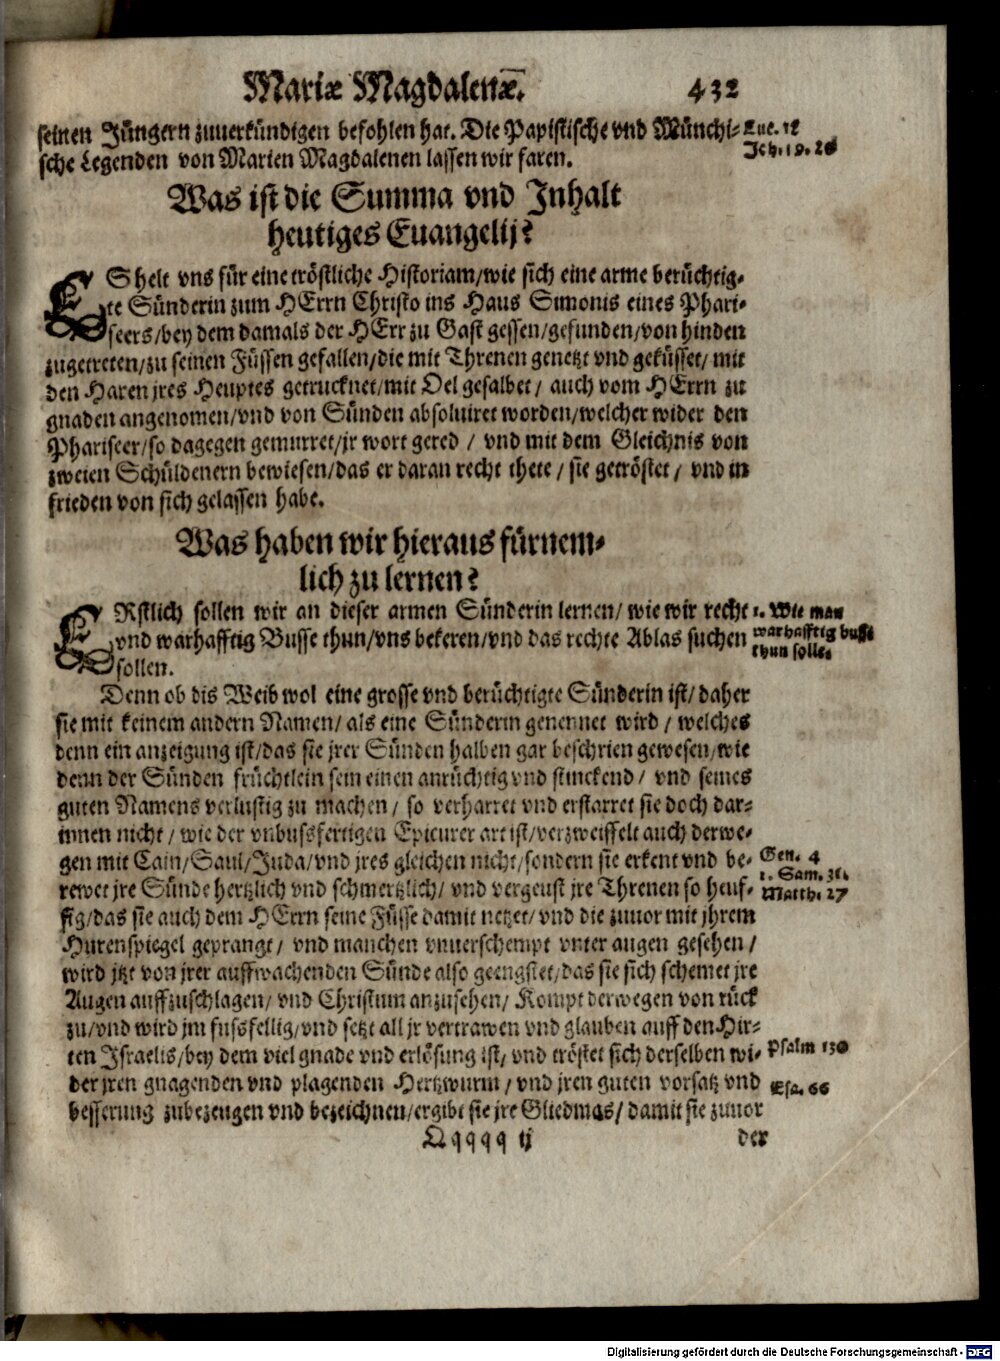 Mariæ Magdalenæ. 432
seinen Jüngern zuuerkündigen befohlen hat. Die Papistische vnd Münchi-
sche Legenden von Marien Magdalenen lassen wir faren.
Luc. 18
Joh. 19. 20
Was ist die Summa vnd Inhalt
heutiges Euangelij?
ES helt vns für eine tröstliche Historiam/wie sich eine arme berüchtig-
te Sünderin zum HErrn Christo ins Haus Simonis eines Phari-
seers/bey dem damals der HErr zu Gast gessen/gefunden/von hinden
zugetreten/zu seinen Füssen gefallen/die mit Threnen genetzt vnd geküsset/ mit
den Haren jres Heuptes getrucknet/mit Oel gesalbet/ auch vom HErrn zu
gnaden angenomen/vnd von Sünden absoluiret worden/welcher wider den
Phariseer/so dagegen gemurret/jr wort gered / vnd mit dem Gleichnis von
zweien Schüldenern bewiesen/das er daran recht thete/ sie getröstet/ vnd in
frieden von sich gelassen habe.
Was haben wir hieraus fürnem-
lich zu lernen?
ERstlich sollen wir an dieser armen Sünderin lernen/ wie wir recht
vnd warhafftig Busse thun/vns bekeren/vnd das rechte Ablas suchen
sollen.
1. Wie man
warhafftig buss
thun solle.
Denn ob dis Weib wol eine grosse vnd berüchtigte Sünderin ist/ daher
sie mit keinem andern Namen/ als eine Sünderin genennet wird/ welches
denn ein anzeigung ist/das sie jrer Sünden halben gar beschrien gewesen/wie
denn der Sünden früchtlein sein einen anrüchtig vnd stinckend/ vnd seines
guten Namens verlustig zu machen/ so verharret vnd erstarret sie doch dar-
innen nicht/ wie der vnbussfertigen Epicurer art ist/verzweiffelt auch derwe-
gen mit Cain/Saul/Juda/vnd jres gleichen nicht/sondern sie erkent vnd be-
rewet jre Sünde hertzlich vnd schmertzlich/ vnd vergeust jre Threnen so heuf-
fig/das sie auch dem HErrn seine Füsse damit netzet/vnd die zuuor mit jhrem
Hurenspiegel geprangt/ vnd manchen vnuerschempt vnter augen gesehen/
wird jtzt von jrer auffwachenden Sünde also geengstet/das sie sich schemet jre
Augen auffzuschlagen/ vnd Christum anzusehen/ Kompt derwegen von rück
zu/vnd wird jm fussfellig/vnd setzt all jr vertrawen vnd glauben auff den Hir-
ten Israelis/bey dem viel gnade vnd erlösung ist/ vnd tröstet sich derselben wi-
der jren gnagenden vnd plagenden Hertzwurm/ vnd jren guten vorsatz vnd
besserung zubezeugen vnd bezeichnen/ergibt sie jre Gliedmas/ damit sie zuuor
Gen. 4
1. Sam. 31.
Matth. 27
Psalm 130
Esa. 66
Qqqqq ij
der
Digitalisierung gefördert durch die Deutsche Forschungsgemeinschaft - DFG